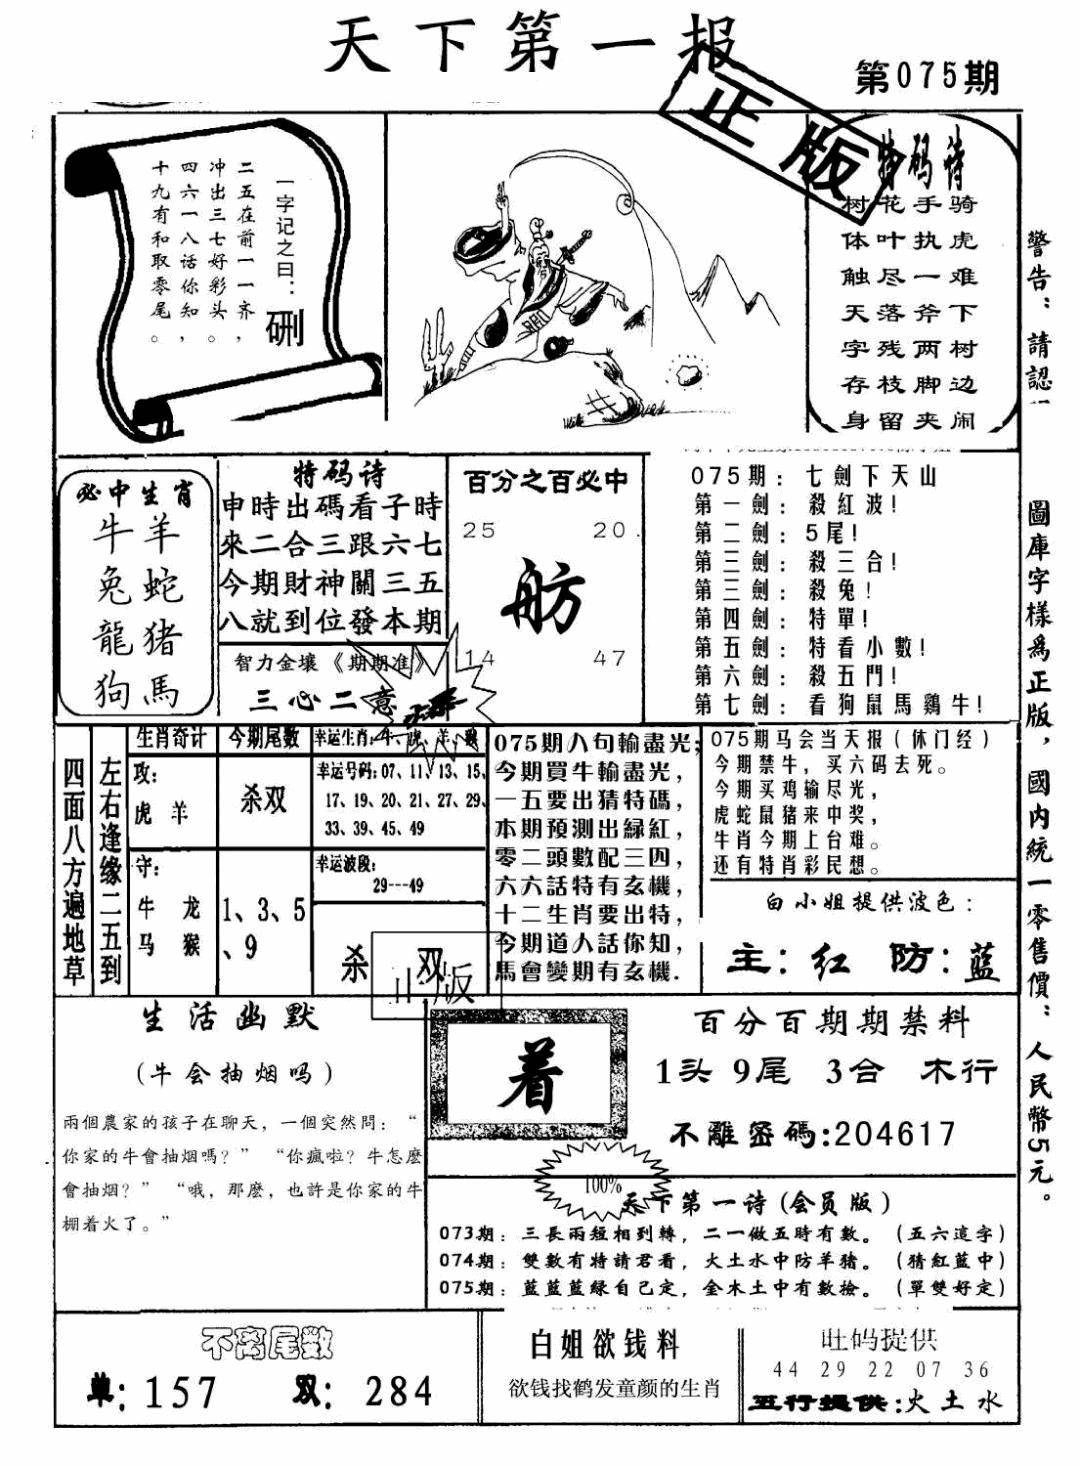 天下第一报
第075期
正版
一字记之曰：
硎
二五在前一一齐，
冲出三七好彩头。
四六一八话你知，
十九有和取零尾。
特码诗
树花手骑
体叶执虎
触尽一难
天落斧下
字残两树
存枝脚边
身留夹闹
警告：請認
圖庫字樣爲正版，國内統一零售價：人民幣5元。
必中生肖
牛羊
兔蛇
龍猪
狗馬
特码诗
申時出碼看子時
來二合三跟六七
今期財神關三五
八就到位發本期
智力金壤《期期准》
三心二意
百分之百必中
25 20
舫
14 47
075期：七劍下天山
第一劍：殺紅波！
第二劍：5尾！
第三劍：殺三合！
第三劍：殺兔！
第四劍：特單！
第五劍：特看小數！
第六劍：殺五門！
第七劍：看狗鼠馬鷄牛！
四面八方遍地草
左右逢缘二五到
生肖奇计
攻：
虎 羊
守：
牛 龙
马 猴
今期尾数
杀双
1、3、5
、9
幸运生肖：牛、虎、羊、猴
幸运号码：07、11、13、15、
17、19、20、21、27、29、
33、39、45、49
幸运波段：
29---49
杀 双
正版
075期八句輸盡光；
今期買牛輸盡光，
一五要出猜特碼，
本期預測出緑紅，
零二頭數配三四，
六六話特有玄機，
十二生肖要出特，
今期道人話你知，
馬會變期有玄機．
075期马会当天报（休门经）
今期禁牛，买六码去死。
今期买鸡输尽光，
虎蛇鼠猪来中奖，
牛肖今期上台难。
还有特肖彩民想。
白小姐提供波色：
主：红 防：蓝
生活幽默
（牛会抽烟吗）
兩個農家的孩子在聊天，一個突然問：“
你家的牛會抽烟嗎？” “你瘋啦？牛怎麽
會抽烟？” “哦，那麽，也許是你家的牛
棚着火了。”
着
百分百期期禁料
1头 9尾 3合 木行
不離密碼：204617
100%
天下第一诗（会员版）
073期：三長兩短相到轉，二一做五時有數。（五六這字）
074期：雙數有特請君看，火土水中防羊猪。（猜紅藍中）
075期：藍藍藍緑自己定，金木土中有數撿。（單雙好定）
不离尾数
单：157 双：284
白姐欲钱料
欲钱找鹤发童颜的生肖
旺码提供
44 29 22 07 36
五行提供：火土水